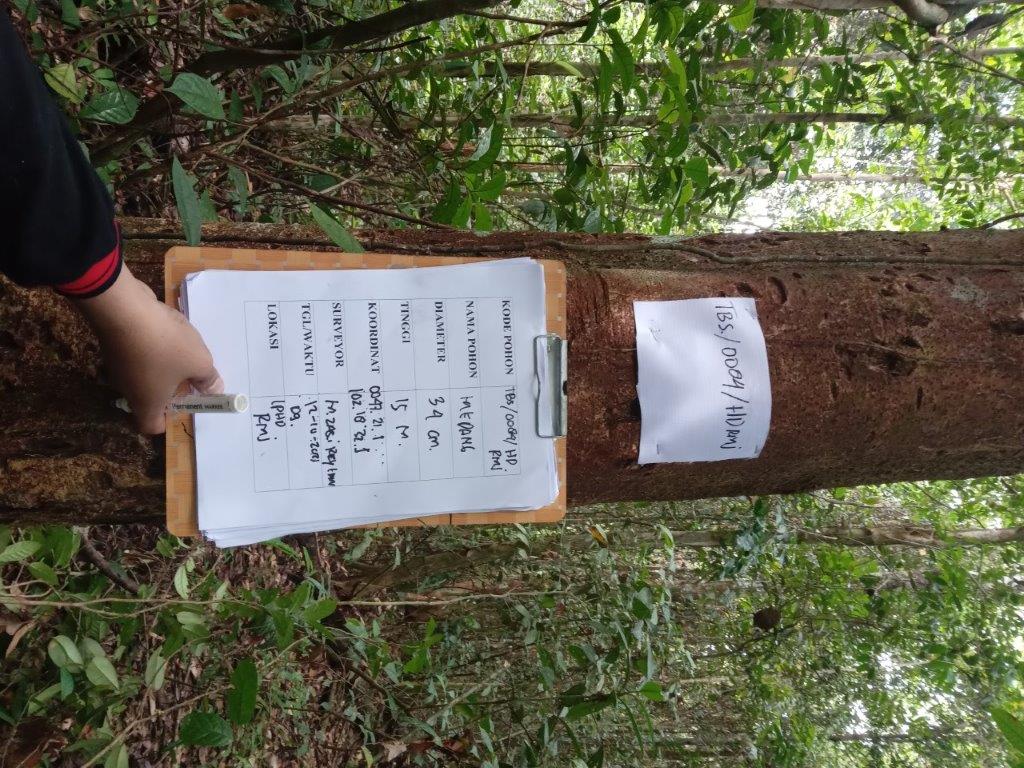 TBS./0004/HDRMJ
KODE POHON TBS/0004/HD.
RMJ
NAMA POHON MEDANG
DIAMETER 34 cm.
TINGGI 15 M.
KOORDINAT
SURVEYOR M.
TGL/WAKTU 12-10-2021
09.
LOKASI LPHD.
RMJ